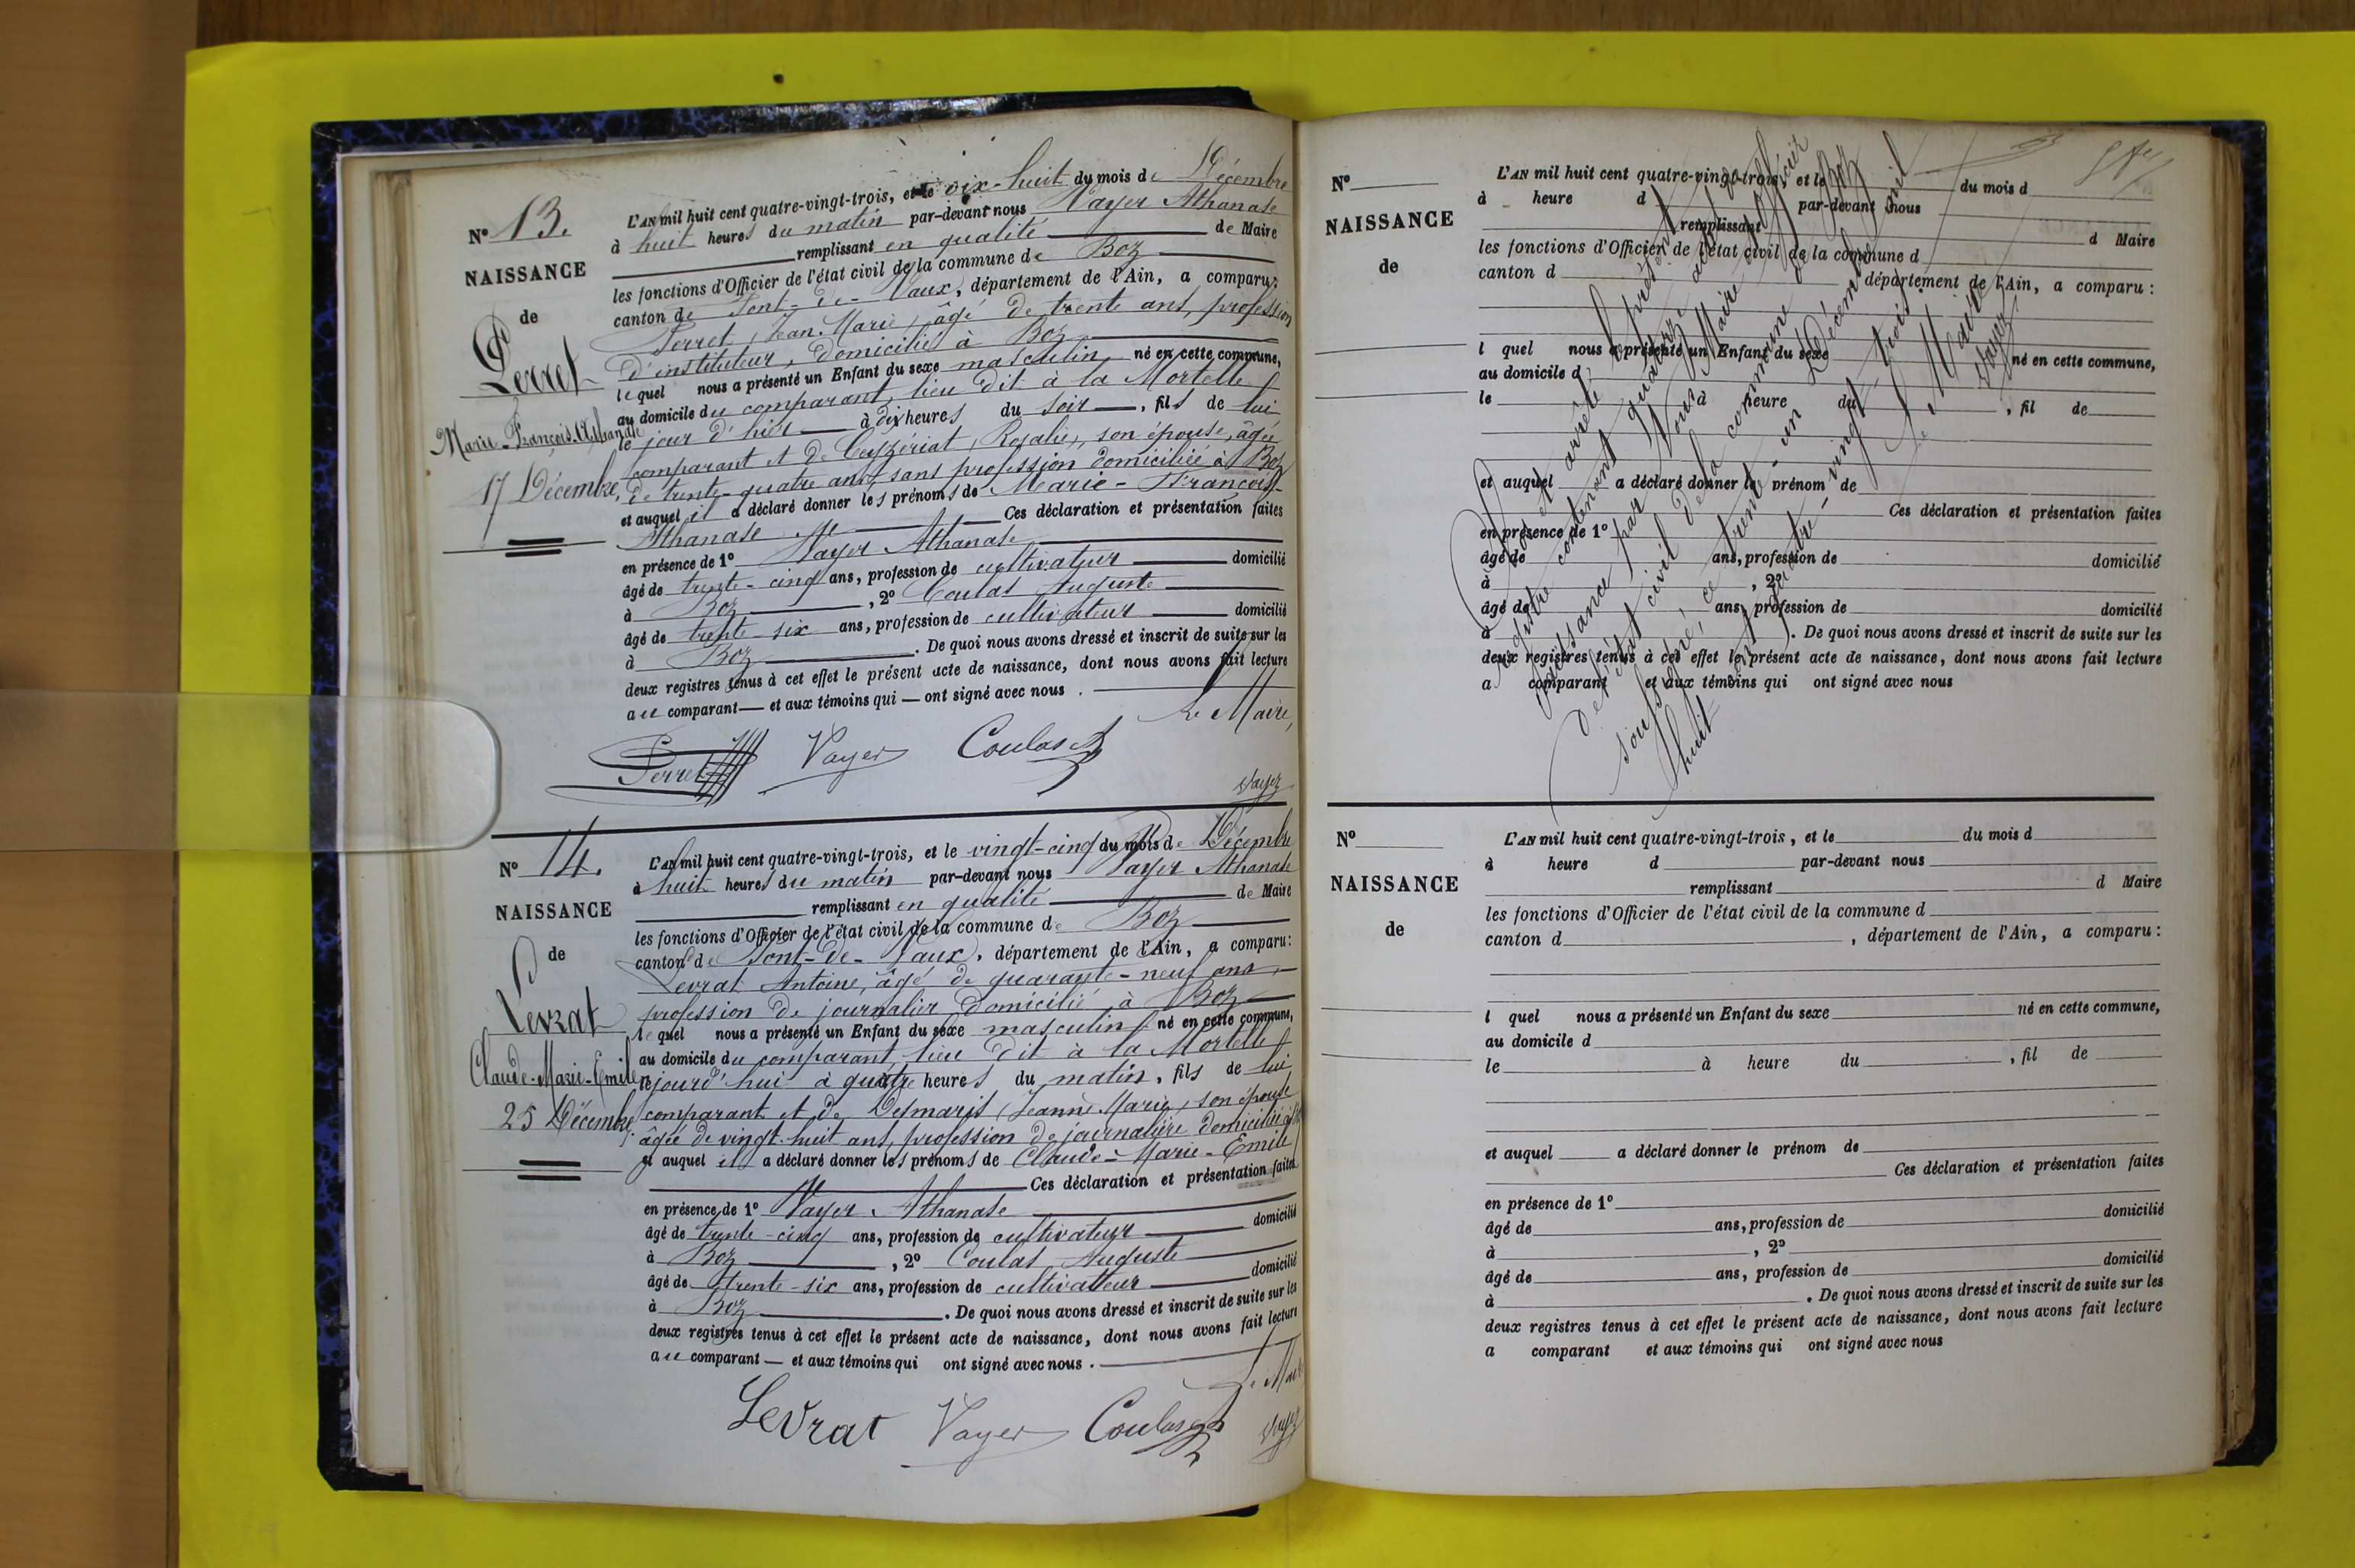 N° 13.
NAISSANCE
de
Perret
Marie-François-Athanase
17 Décembre
L'AN mil huit cent quatre-vingt-trois, et le dix-huit du mois de Décembre
à huit heures du matin par-devant nous Vayer Athanase
remplissant en qualité de Maire
les fonctions d'Officier de l'état civil de la commune de Boz
canton de Pont-de-Vaux, département de l'Ain, a comparu:
Perret, Jean-Marie, âgé de trente ans, profession
d'instituteur, domicilié à Boz
lequel nous a présenté un Enfant du sexe masculin né en cette commune,
au domicile du comparant, lieu dit à la Mortelle
le jour d'hier à dix heures du soir, fils de lui
comparant et de Cuzériat, Rosalie, son épouse, âgée
de trente-quatre ans, sans profession domiciliée à Boz
et auquel il a déclaré donner les prénoms de Marie-François-
Athanase Ces déclaration et présentation faites
en présence de 1° Vayer Athanase
âgé de trente-cinq ans, profession de cultivateur domicilié
à Boz, 2° Coulas Auguste
âgé de trente-six ans, profession de cultivateur domicilié
à Boz. De quoi nous avons dressé et inscrit de suite sur les
deux registres tenus à cet effet le présent acte de naissance, dont nous avons fait lecture
au comparant — et aux témoins qui — ont signé avec nous.
Le Maire,
Perret Vayer Coulas
Vayer
N° 14.
NAISSANCE
de
Levrat
Claude-Marie-Emile
25 Décembre
L'AN mil huit cent quatre-vingt-trois, et le vingt-cinq du mois de Décembre
à huit heures du matin par-devant nous Vayer Athanase
remplissant en qualité de Maire
les fonctions d'Officier de l'état civil de la commune de Boz
canton de Pont-de-Vaux, département de l'Ain, a comparu:
Levrat Antoine, âgé de quarante-neuf ans,
profession de journalier domicilié à Boz
lequel nous a présenté un Enfant du sexe masculin né en cette commune,
au domicile du comparant, lieu dit à la Mortelle
cejourd'hui à quatre heures du matin, fils de lui
comparant et de Desmaris, Jeanne-Marie, son épouse
âgée de vingt-huit ans, profession de journalière domiciliée à Boz
et auquel il a déclaré donner les prénoms de Claude-Marie-Emile
Ces déclaration et présentation faites
en présence de 1° Vayer Athanase
âgé de trente-cinq ans, profession de cultivateur domicilié
à Boz, 2° Coulas Auguste
âgé de trente-six ans, profession de cultivateur domicilié
à Boz. De quoi nous avons dressé et inscrit de suite sur les
deux registres tenus à cet effet le présent acte de naissance, dont nous avons fait lecture
au comparant — et aux témoins qui ont signé avec nous.
Le Maire
Levrat Vayer Coulas Vayer
N°
NAISSANCE
de
L'AN mil huit cent quatre-vingt-trois, et le du mois d
à heure d par-devant nous
remplissant d Maire
les fonctions d'Officier de l'état civil de la commune d
canton d département de l'Ain, a comparu:
l quel nous a présenté un Enfant du sexe né en cette commune,
au domicile d
le à heure du, fil de
et auquel a déclaré donner le prénom de
Ces déclaration et présentation faites
en présence de 1°
âgé de ans, profession de domicilié
à, 2°
âgé de ans, profession de domicilié
à. De quoi nous avons dressé et inscrit de suite sur les
deux registres tenus à cet effet le présent acte de naissance, dont nous avons fait lecture
a comparant et aux témoins qui ont signé avec nous
Clos et arrêté le présent
registre contenant quatorze actes de
naissance par Nous Maire officier
de l'état civil de la commune de Boz
soussigné, ce trente-un Décembre mil
huit cent quatre-vingt-trois.
Le Maire
Vayer
N°
NAISSANCE
de
L'AN mil huit cent quatre-vingt-trois, et le du mois d
à heure d par-devant nous
remplissant d Maire
les fonctions d'Officier de l'état civil de la commune d
canton d, département de l'Ain, a comparu:
l quel nous a présenté un Enfant du sexe né en cette commune,
au domicile d
le à heure du, fil de
et auquel a déclaré donner le prénom de
Ces déclaration et présentation faites
en présence de 1°
âgé de ans, profession de domicilié
à, 2°
âgé de ans, profession de domicilié
à. De quoi nous avons dressé et inscrit de suite sur les
deux registres tenus à cet effet le présent acte de naissance, dont nous avons fait lecture
a comparant et aux témoins qui ont signé avec nous